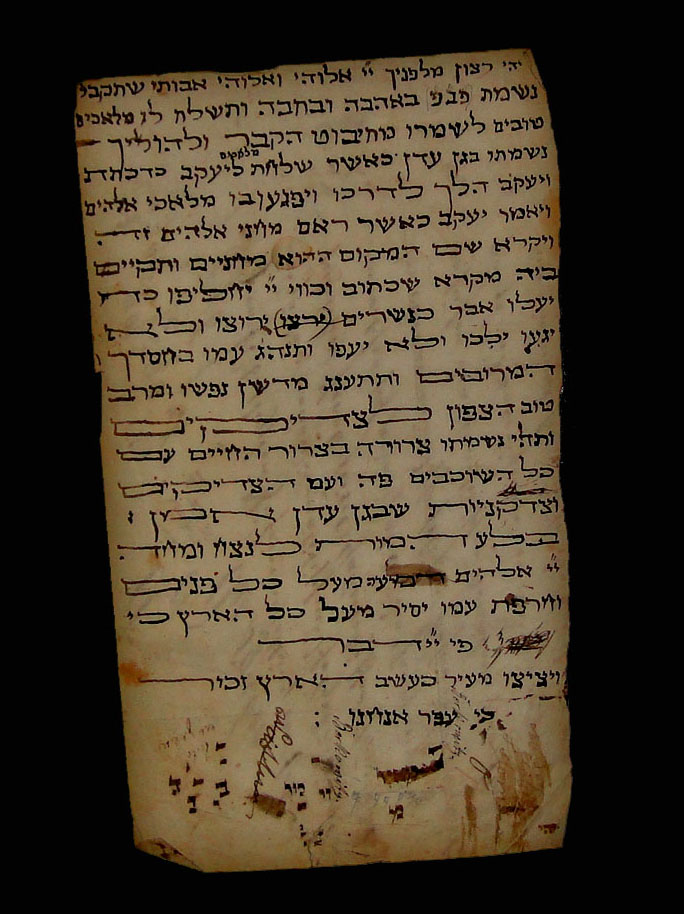 יהי רצון מלפניך יי אלוהי ואלוהי אבותי שתקבל
נשמת פבפ באהבה ובחבה ותשלח לו מלאכים
טובים לשמרו מחיבוט הקבר ולהוליך
נשמתו בגן עדן כאשר שלחת מלאכים ליעקב כדכתת
ויעקב הלך לדרכו ויפגעובו מלאכי אלהים
ויאמר יעקב כאשר ראם מחני אלהים זה
ויקרא שם המקום ההוא מחניים ותקיים
ביה מקרא שכתוב וכווי יי יחליפו כח
יעלו אבר כנשרים (ירצו) ירוצו ולא
יגעו ילכו ולא יעפו ותנהג עמו בחסדך
המרובים ותתענג מדשן נפשו ומרב
טוב הצפון לצדיקים
ותהי נשמתו צרורה בצרור החיים עם
כל השוכבים פה ועם הצדיקים
וצדקניות שבגן עדן אמן
בלע המות לנצח ומחה
יי אלהים דמעה מעל כל פנים
וחרפת עמו יסיר מעל כל הארץ כי
כי יי דבר
ויציצו מעיר כעשב הארץ זכור
כי עפר אנחנו :